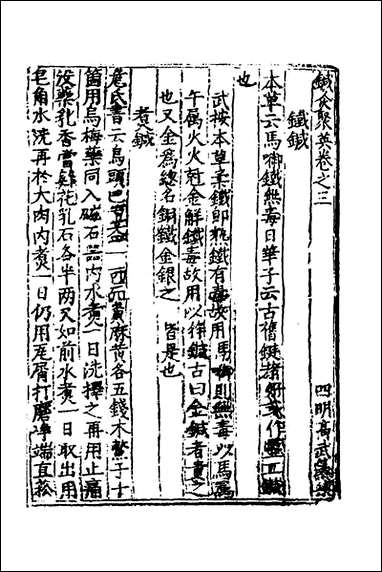 鍼灸聚英卷之三 四明高武纂集
鐵鍼
本草云馬啣鐵無毒日華子云古舊鋌者好或作醫工鍼
也
武按本草柔鐵即熟鐵有毒故用馬啣則無毒以馬屬
午屬火火尅金解鐵毒故用以作鍼古曰金鍼者貴之
也又金爲總名銅鐵金銀之 皆是也
煮鍼
危氏書云烏頭巴豆各一兩 麻黄各五錢木鱉子十
箇用烏梅藥同入磁石器內水煮一日洗擇之再用止痛
没藥乳香當歸花乳石各半兩又如前水煮一日取出用
皂角水洗再於犬肉內煮一日仍用瓦屑打磨淨端直菘